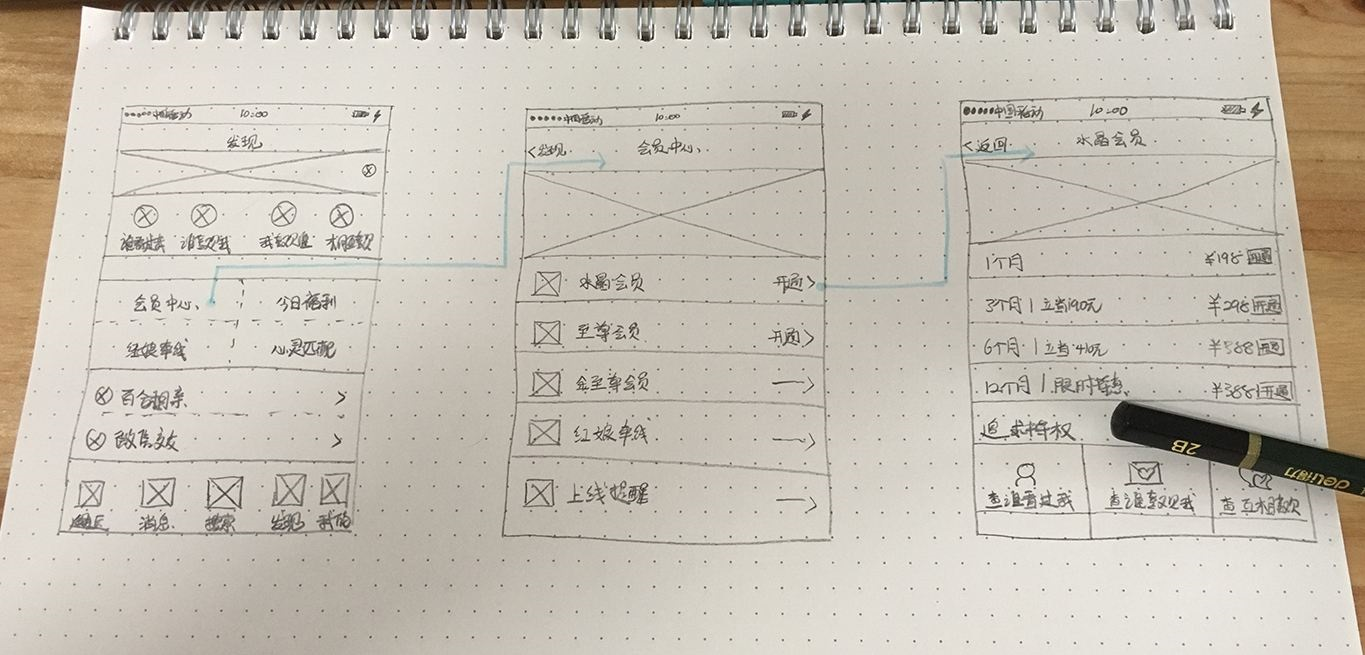 中国移动 10:00
发现
谁看过我 谁喜欢我 我喜欢谁 相互喜欢
会员中心 今日福利
红娘牵线 心灵匹配
百合相亲
消息 搜索 发现 我的
中国移动 10:00
<发现 会员中心
水晶会员 开通>
至尊会员 开通>
金至尊会员
红娘牵线
上线提醒
中国移动 10:00
<返回 水晶会员
1个月 ¥198 开通
3个月 | 立省190元 ¥298 开通
6个月 | 立省410元 ¥388 开通
12个月 | 限时特惠 ¥388 开通
追求特权
查谁看过我 查谁喜欢我 查互相喜欢
2B
deli得力